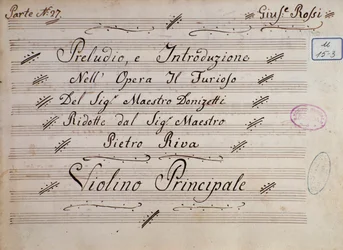 Parte N.º 27.
Gius.e Rossi
M
15-3
Preludio, e Introduzione
Nell' Opera Il Furioso
Del Sig.r Maestro Donizetti
Ridotte dal Sig.r Maestro
Pietro Riva
Violino Principale